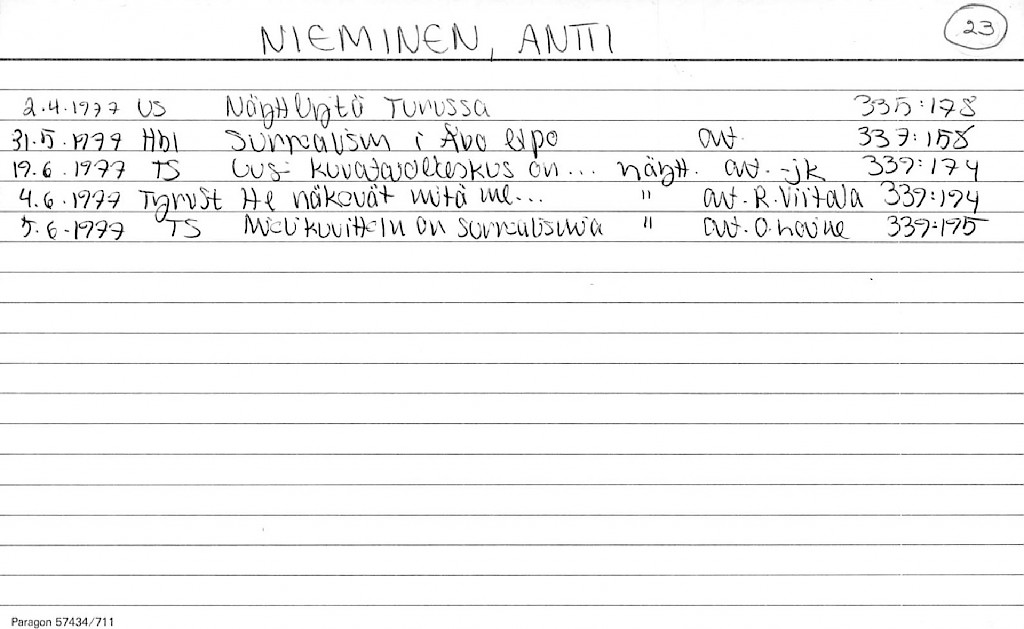 NIEMINEN, ANTTI 23
2.4.1977 US Näyttelyitä Turussa 335:178
31.5.1977 Hbl Surrealism i Åbo expo avt. 337:158
19.6.1977 TS Uusi kuvataidekeskus on... näytt. avt. -jk 339:174
4.6.1977 TyrvSt He näkevät mitä me... " avt. R. Viitala 339:194
5.6.1977 TS Mielikuvittelu on surrealismia " avt. O. Laine 339:195
Paragon 57434/711